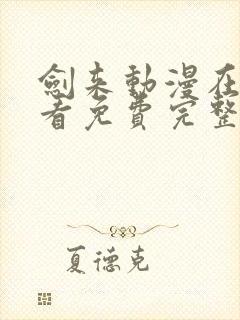 劍来動漫在
看免費完整
夏德克